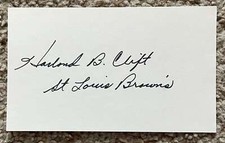 Harlond B. Clift
St Louis Brown's